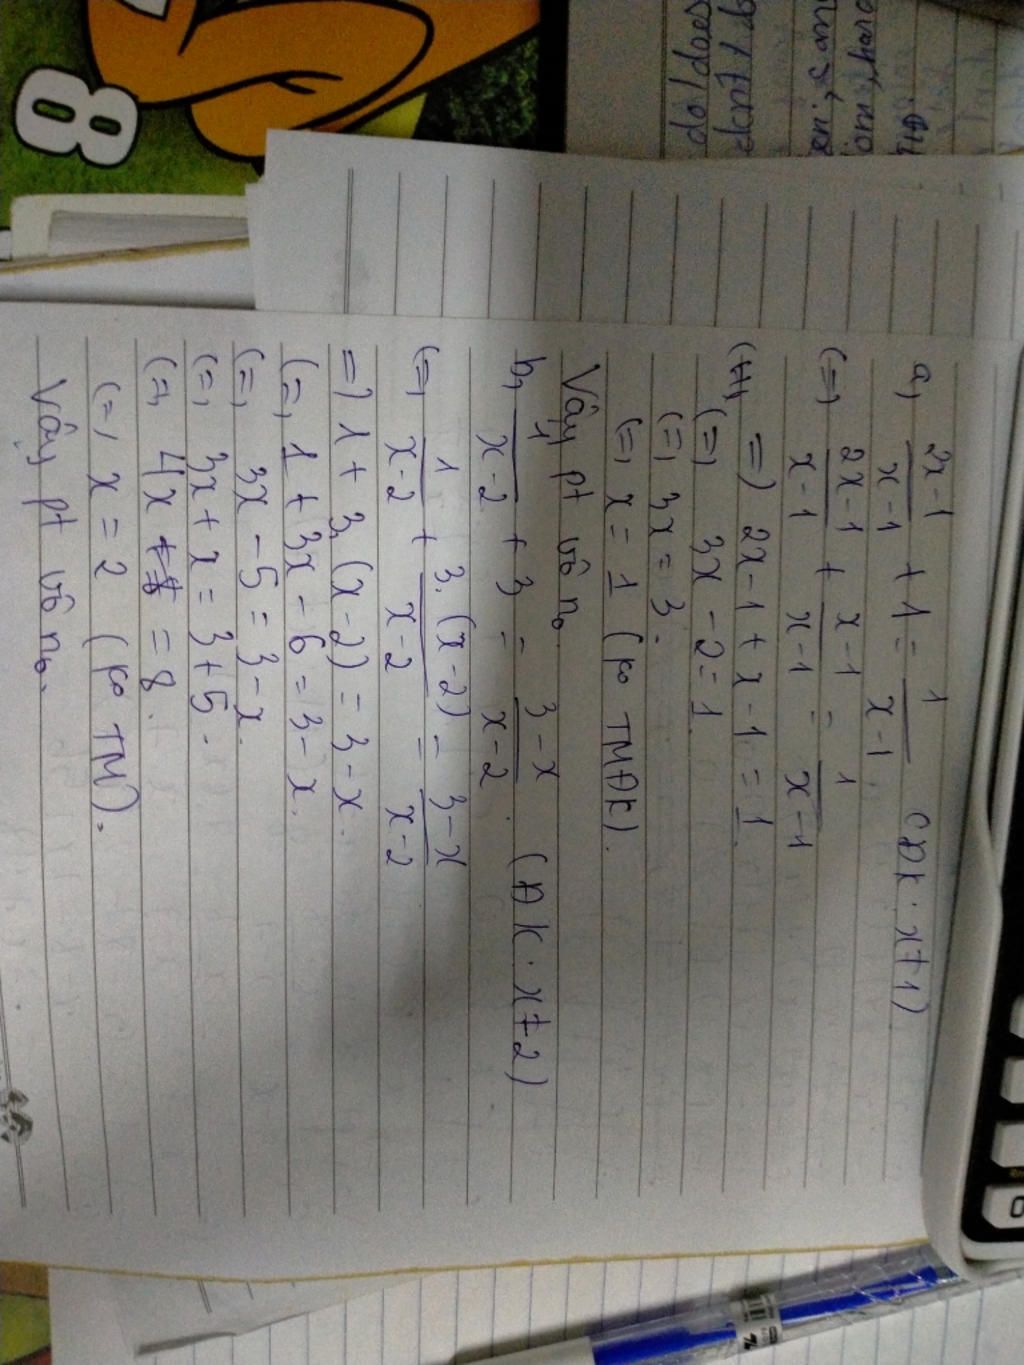 a, (2x-1)/(x-1) + 1 = 1/(x-1) (ĐK: x≠1)
(=) (2x-1)/(x-1) + (x-1)/(x-1) = 1/(x-1)
=) 2x-1 + x-1 = 1
(=) 3x - 2 = 1
(=) 3x = 3.
(=) x = 1 (ko TMĐK).
Vây pt vô no
b, 1/(x-2) + 3 = (3-x)/(x-2) (ĐK: x≠2)
(=) 1/(x-2) + 3.(x-2)/(x-2) = (3-x)/(x-2)
=) 1 + 3.(x-2) = 3-x.
(=) 1 + 3x - 6 = 3 - x.
(=) 3x - 5 = 3 - x.
(=) 3x + x = 3+5.
(=) 4x = 8.
(=) x = 2 (ko TM).
Vây pt vô no.
8
do/does